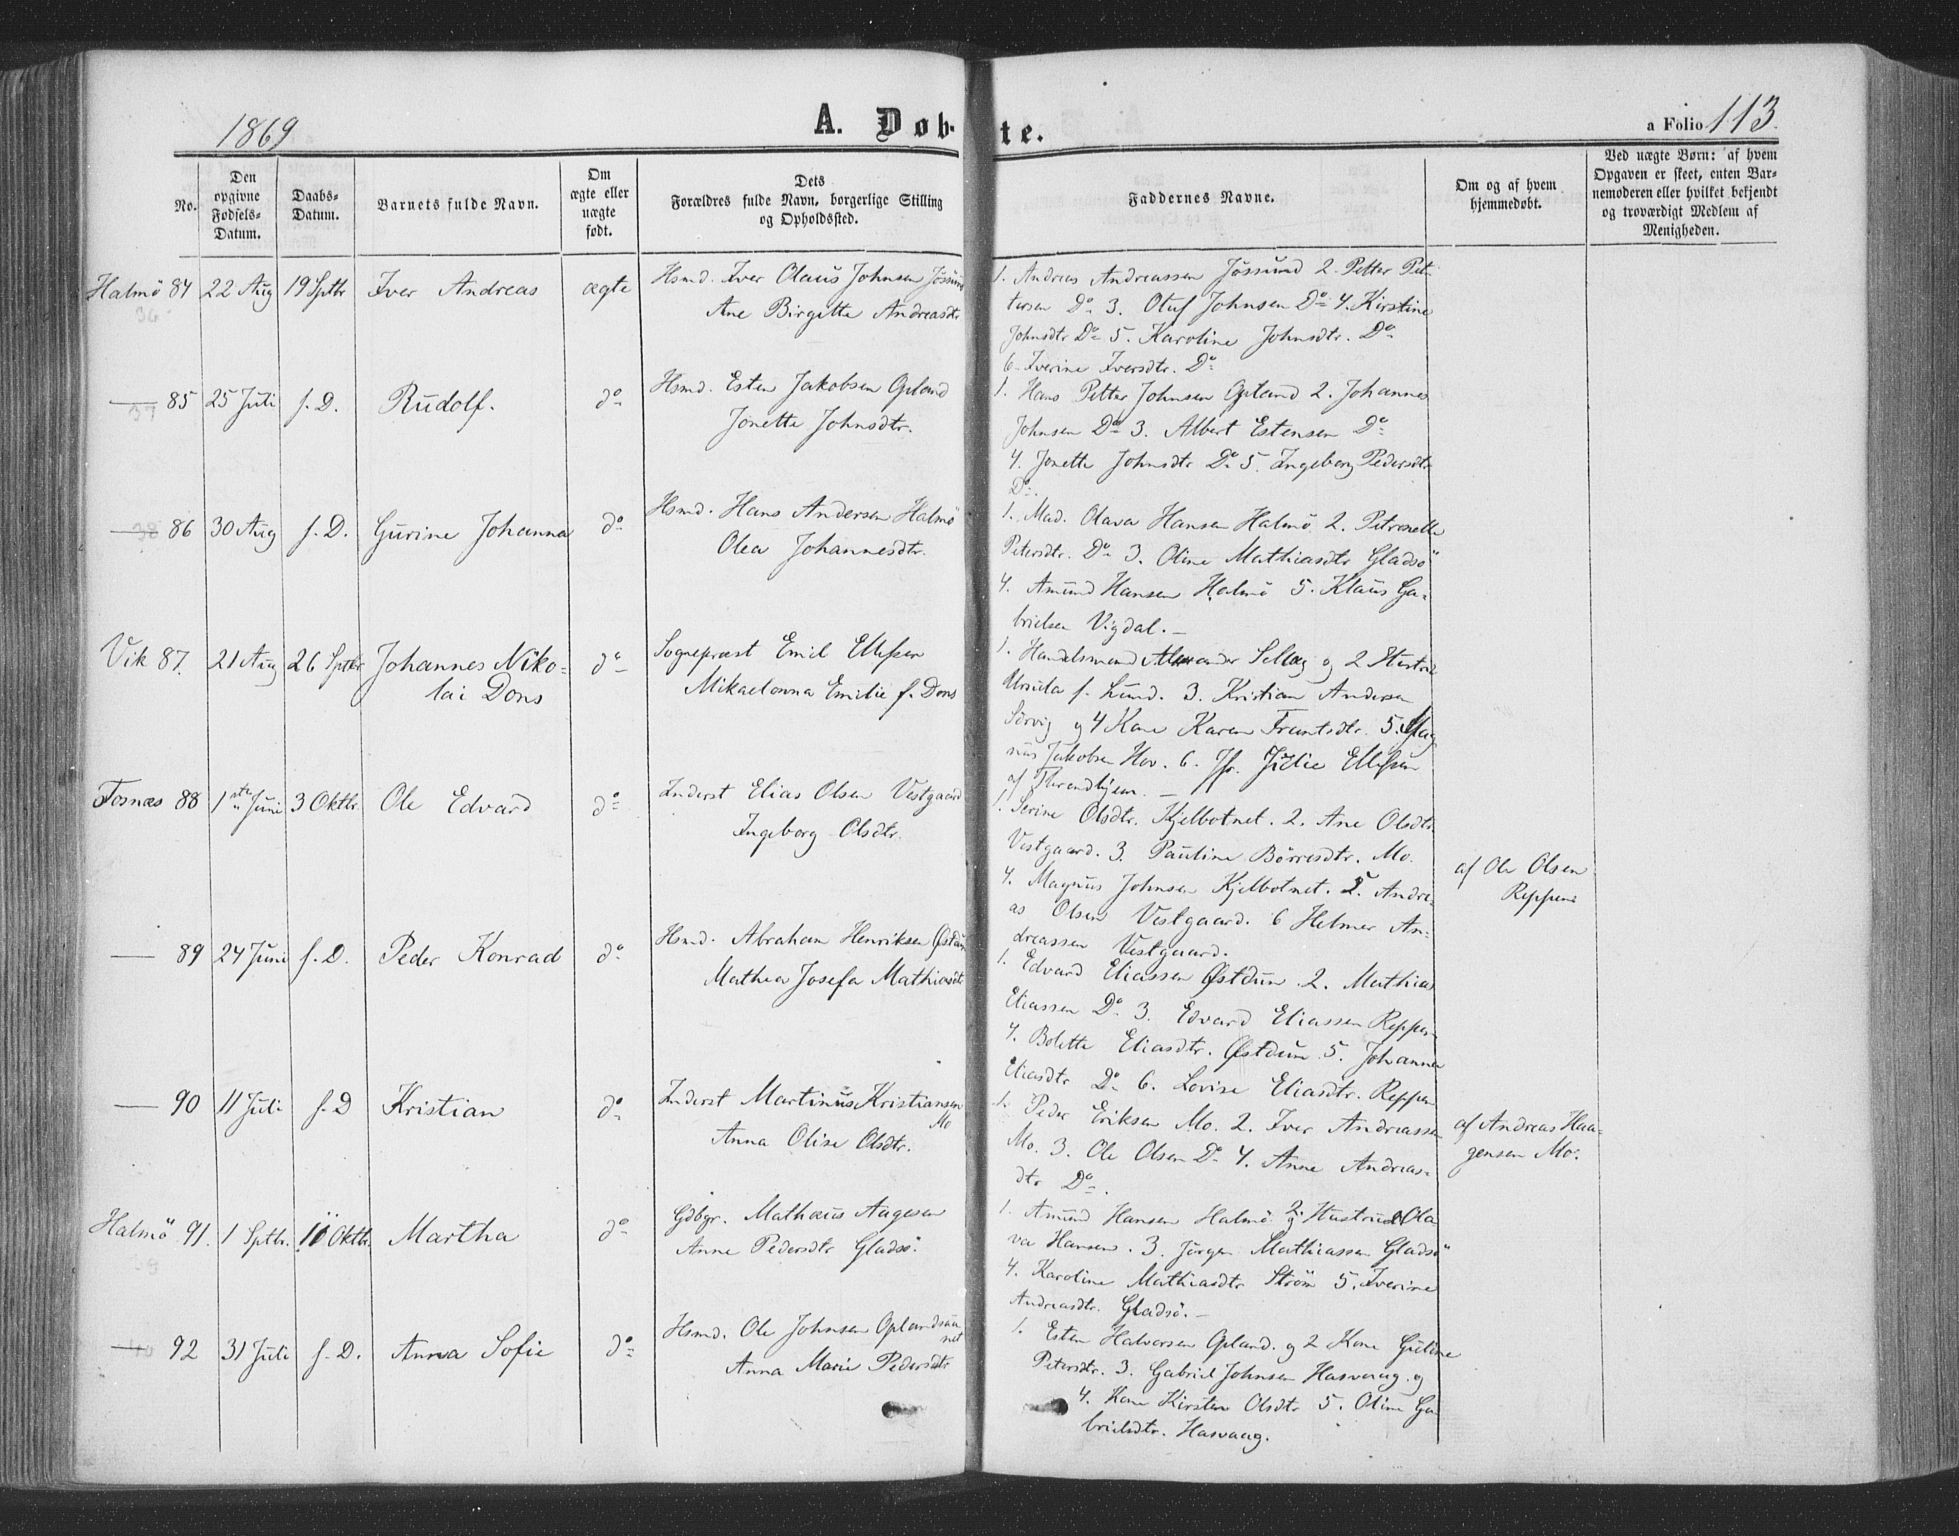 1869
A. Døb-
te.
a Folio 113.
No.
Den
opgivne
Fødsels-
Datum.
Daabs-
Datum.
Barnets fulde Navn.
Om
ægte eller
uægte
født.
Dets
Forældres fulde Navn, borgerlige Stilling
og Opholdssted.
Faddernes Navne.
Om og af hvem
hjemmedøbt.
Ved uægte Børn: af hvem
Opgaven er skeet, enten Bar-
nemoderen eller hvilket bekjendt
og troværdigt Medlem af
Menigheden.
Halmö 84 22 Aug 19 Sptbr Iver Andreas ægte Hsmd. Iver Olaus Johnsen Jössund
36
Ane Birgitta Andreasdtr
1. Andreas Andreassen Jössund 2. Petter Pet-
tersen Do 3. Oluf Johnsen Do 4. Kirstine
Johnsdtr Do 5. Karoline Johnsdtr. Do
6. Iverine Iversdtr. Do
— 85 25 Juli s. D. Rudolf. do Hsmd. Esten Jakobsen Opland
37
Jonetta Johnsdtr.
1. Hans Petter Johnsen Opland 2. Johannes
Johnsen Do 3. Albert Estensen Do
4. Jonetta Johnsdtr Do 5. Ingeborg Pedersdtr
Do
— 86 30 Aug s. D. Gurine Johanna do Hsmd. Hans Andersen Halmö
38
Olea Johannesdtr.
1. Mad. Olava Hansen Halmö 2. Petronelle
Petersdtr. Do 3. Oline Mathiasdtr Gladsö
4. Amund Hansen Halmö 5. Klaus Ga-
brielsen Vigdal. —
Vik 87. 21 Aug 26 Sptbr Johannes Niko- do Sognepræst Emil Ellefsen
lai Dons
Mikaelanna Emilie f. Dons
1. Handelsmand Alexander Sellæg og 2 Hustru
Ursula f. Lund. 3. Kristian Andersen
Sörvig og 4 Kone Karen Frantsdtr. 5. Mag-
nus Jakobsen Hov. 6. Jfr. Julie Ellefsen
af Throndhjem. —
Fosnæs 88 1ste Juni 3 Oktbr. Ole Edvard do Inderst Elias Olsen Vestgaard
Ingeborg Olsdtr.
1. Serine Olsdtr. Kjelbotnet. 2. Ane Olsdtr.
Vestgaard. 3. Pauline Börresdtr. Mo.
4. Magnus Johnsen Kjelbotnet. 5. Andre-
as Olsen Vestgaard. 6 Helmer An-
dreassen Vestgaard.
af Ole Olsen
Reppen
— 89 24 Juni s. D. Peder Konrad do Hsmd. Abraham Henriksen Østdun
Mathea Josefa Mathiasdtr
1. Edvard Eliassen Østdun 2. Mathias
Eliassen Do 3. Edvard Eliassen Reppen
4. Bolette Eliasdtr. Østdun 5. Johanna
Eliasdtr Do 6. Lovise Eliasdtr. Reppen
— 90 11 Juli s. D Kristian do Inderst Martinus Kristiansen
Mo
Anna Olise Olsdtr.
1. Peder Eriksen Mo. 2. Iver Andreassen
Mo. 3. Ole Olsen Do 4. Anne Andreas-
dtr Do.
af Andreas Haa-
gensen Mo.
Halmö 91. 1 Sptbr. 10 Oktbr. Martha do Gdbgr. Mathæus Aagesen
39
Anne Pedersdtr Gladsö.
1. Amund Hansen Halmö og 2. Hustru Ola
va Hansen. 3. Jörgen Mathiassen Gladsö
4. Karoline Mathiasdtr Ström 5. Iverine
Andreasdtr. Gladsö. —
— 92 31 Juli s. D. Anna Sofie do Hsmd. Ole Johnsen Oplandsau-
net
40
Anna Marie Pedersdtr
1. Esten Halvorsen Opland. og 2 Kone Guline
Petersdtr. 3. Gabriel Johnsen Hasvaag. og
4. Kone Kirsten Olsdtr 5. Oline Ga-
brielsdtr. Hasvaag.